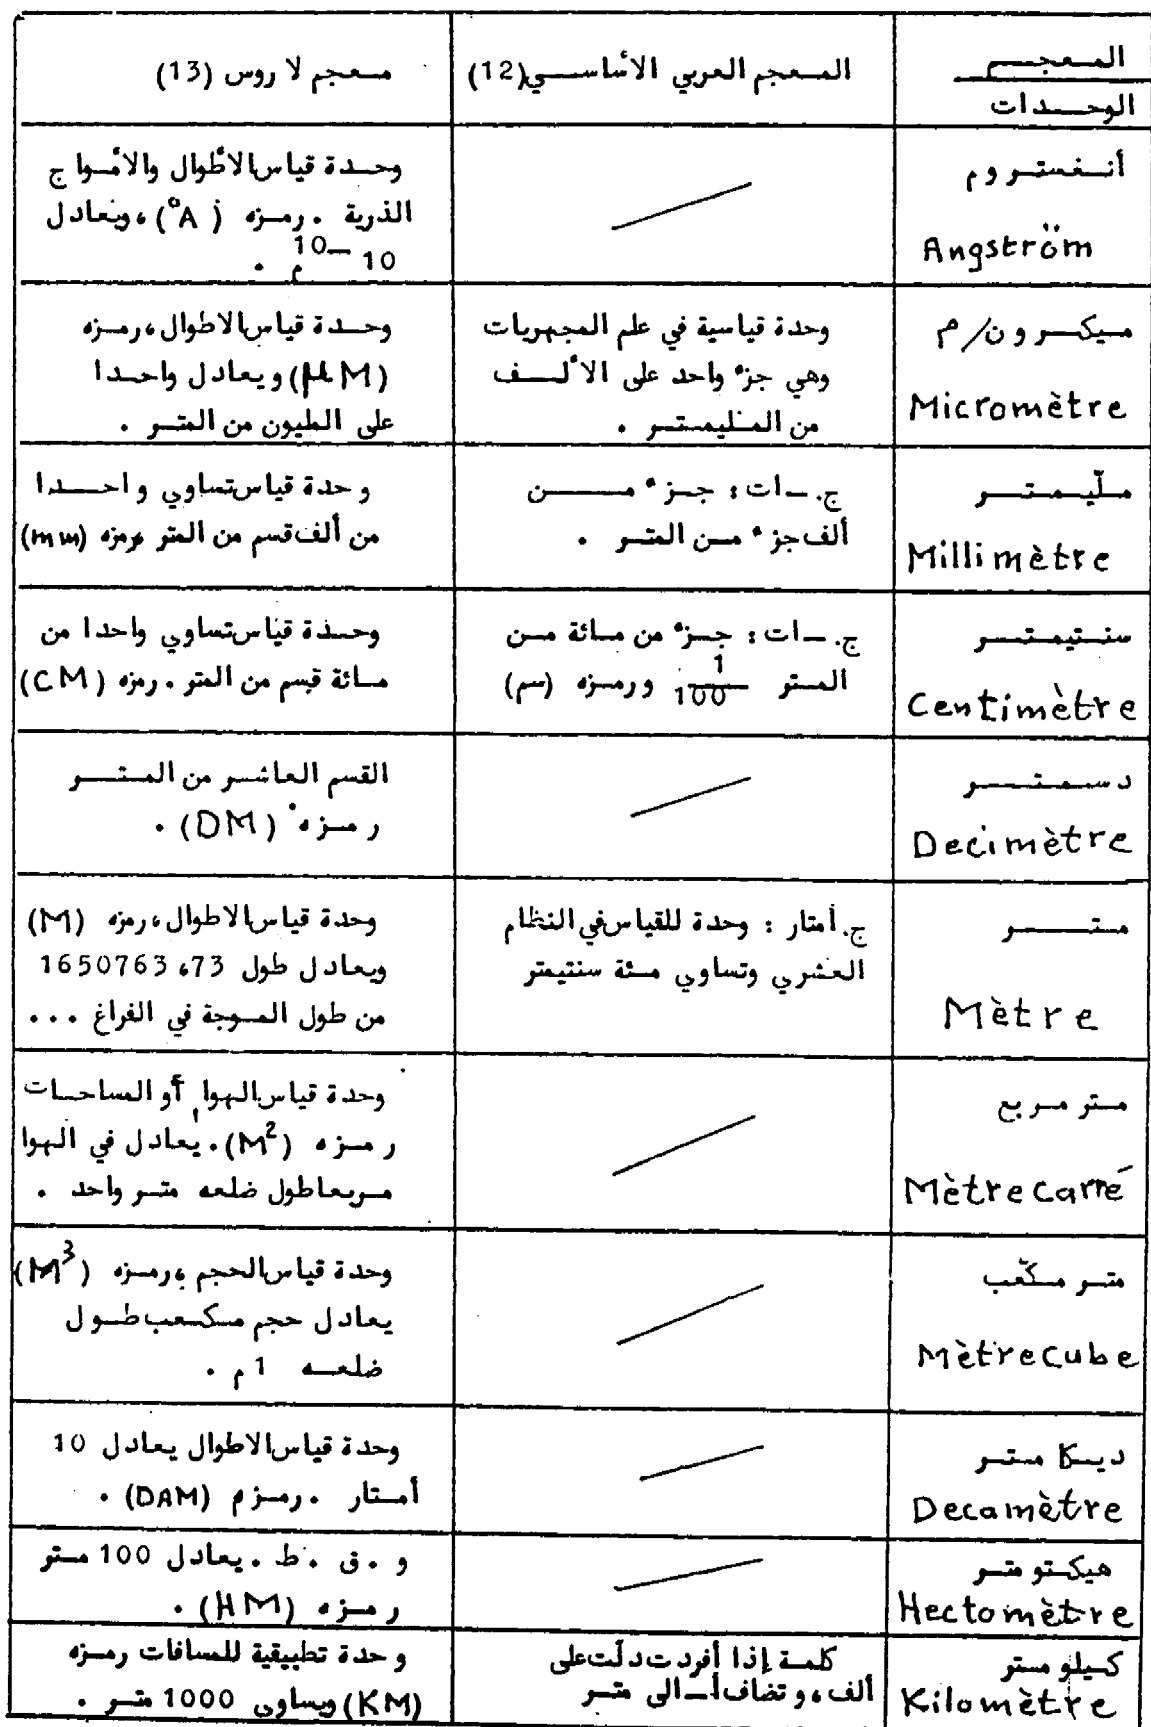 المعجم
الوحدات
المعجم العربي الأساسي(12)
معجم لا روس (13)
أنغستروم
Angström
وحدة قياس الأطوال والأمواج
الذرية . رمزه (A°)، ويعادل
10−10 م .
ميكرون/م
Micromètre
وحدة قياسية في علم المجهريات
وهي جزء واحد على الألف
من المليمتر .
وحدة قياس الاطوال، رمزه
(µM) ويعادل واحدا
على المليون من المتر .
ملّيمتر
Millimètre
ج. ــات : جزء من
ألف جزء من المتر .
وحدة قياس تساوي واحدا
من ألف قسم من المتر رمزه (mm)
سنتيمتر
Centimètre
ج. ــات : جزء من مائة من
المتر 1/100 ورمزه (سم)
وحدة قياس تساوي واحدا من
مائة قسم من المتر . رمزه (CM)
دسمتر
Decimètre
القسم العاشر من المتر
رمزه (DM) .
متر
Mètre
ج. أمتار : وحدة للقياس في النظام
العشري وتساوي مئة سنتيمتر
وحدة قياس الاطوال، رمزه (M)
ويعادل طول 1650763،73
من طول الموجة في الفراغ ...
متر مربع
Mètre carré
وحدة قياس الهوا أو المساحات
رمزه (M²). يعادل في الهوا
مربعا طول ضلعه متر واحد .
متر مكعّب
Mètre cube
وحدة قياس الحجم ، رمزه (M³)
يعادل حجم مكعب طول
ضلعه 1 م .
ديكا متر
Decamètre
وحدة قياس الاطوال يعادل 10
أمتار . رمزم (DAM) .
هيكتو متر
Hectomètre
و . ق . ط . يعادل 100 متر
رمزه (HM) .
كيلو متر
Kilomètre
كلمة إذا أفردت دلّت على
ألف، وتضاف أــ الى متر
وحدة تطبيقية للمسافات رمزه
(KM) ويساوي 1000 متر .